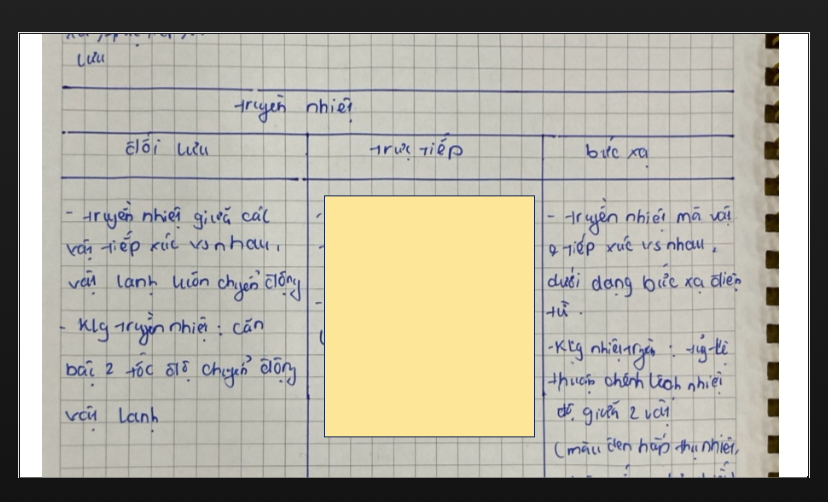 lưu
truyền nhiệt
đối lưu
trực tiếp
bức xạ
- truyền nhiệt giữa các
vật tiếp xúc vs nhau,
vật lạnh luôn chuyển động
- Klg truyền nhiệt : căn
bậc 2 tốc độ chuyển động
vật lạnh
- truyền nhiệt mà vật
tiếp xúc vs nhau,
dưới dạng bức xạ điện
từ.
- Klg nhiệt truyền : tỷ lệ
thuận chênh lệch nhiệt
độ giữa 2 vật
(màu đen hấp thụ nhiệt,